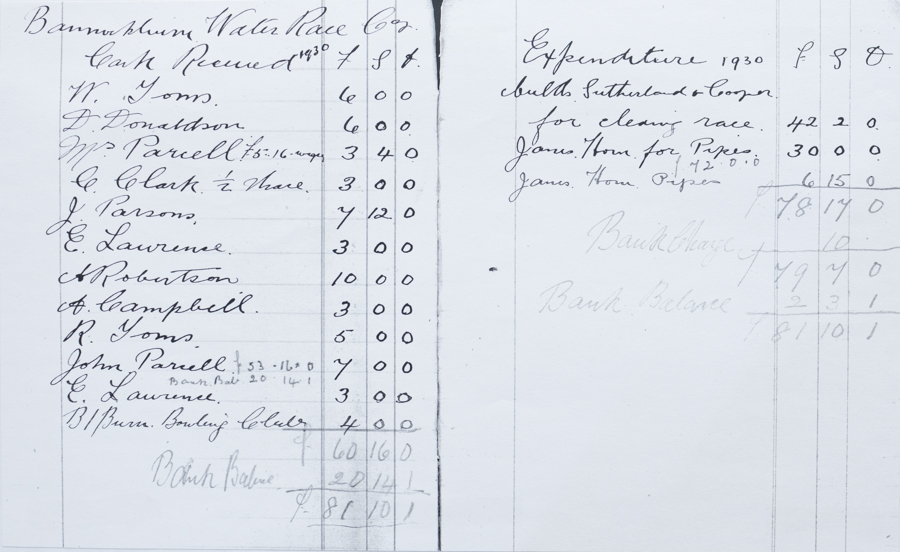 Bannockburn Water Race Coy.
Cash Received 1930 £ S D.
W. Toms. 6 0 0
D. Donaldson 6 0 0
Mrs Parcell £5-16- 3 4 0
C Clark ½ Share. 3 0 0
J. Parsons, 7 12 0
E. Lawrence. 3 0 0
A Robertson 10 0 0
A. Campbell. 3 0 0
R. Toms, 5 0 0
John Parcell £53-16-0 7 0 0
Bank Bal 20 14 1
E. Lawrence. 3 0 0
B/Burn. Bowling Club 4 0 0
£ 60 16 0
Bank Balance 20 14 1
£ 81 10 1
Expenditure 1930 £ S D.
Sutherland & Cooper
for cleaning race. 42 2 0
James Horn for Pipes. 30 0 0
72 0 0
James Horn Pipes 6 15 0
£ 78 17 0
Bank Charge 10
£ 79 7 0
Bank Balance 2 3 1
£ 81 10 1